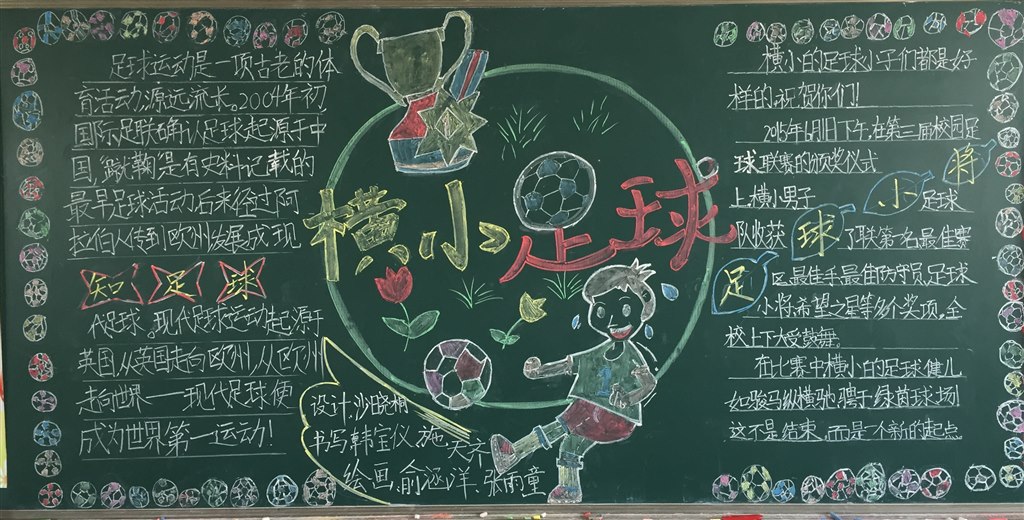 足球运动是一项古老的体
育活动,源远流长。2004年初
国际足联确认足球起源于中
国,蹴鞠是有史料记载的
最早足球活动后来经过阿
拉伯人传到欧洲发展成现
知足球
代足球。现代足球运动起源于
英国,从英国走向欧洲,从欧洲
走向世界——现代足球便
成为世界第一运动!
横小足球
设计:沙晓
书写:韩宝仪、施天齐
绘画:俞涵洋、张雨童
横小的足球小子们都是好
样的,祝贺你们!
2016年6月1日下午,在第三届校园足
球联赛的颁奖仪式
上横小男子足球
队收获了联第一名最佳赛
区最佳手最佳防守员足球
小将希望之星等多个奖项,全
校上下大受鼓舞。
足球小将
在比赛中横小的足球健儿
如骏马纵横驰骋于绿茵球场!
这不是结束,而是一个新的起点